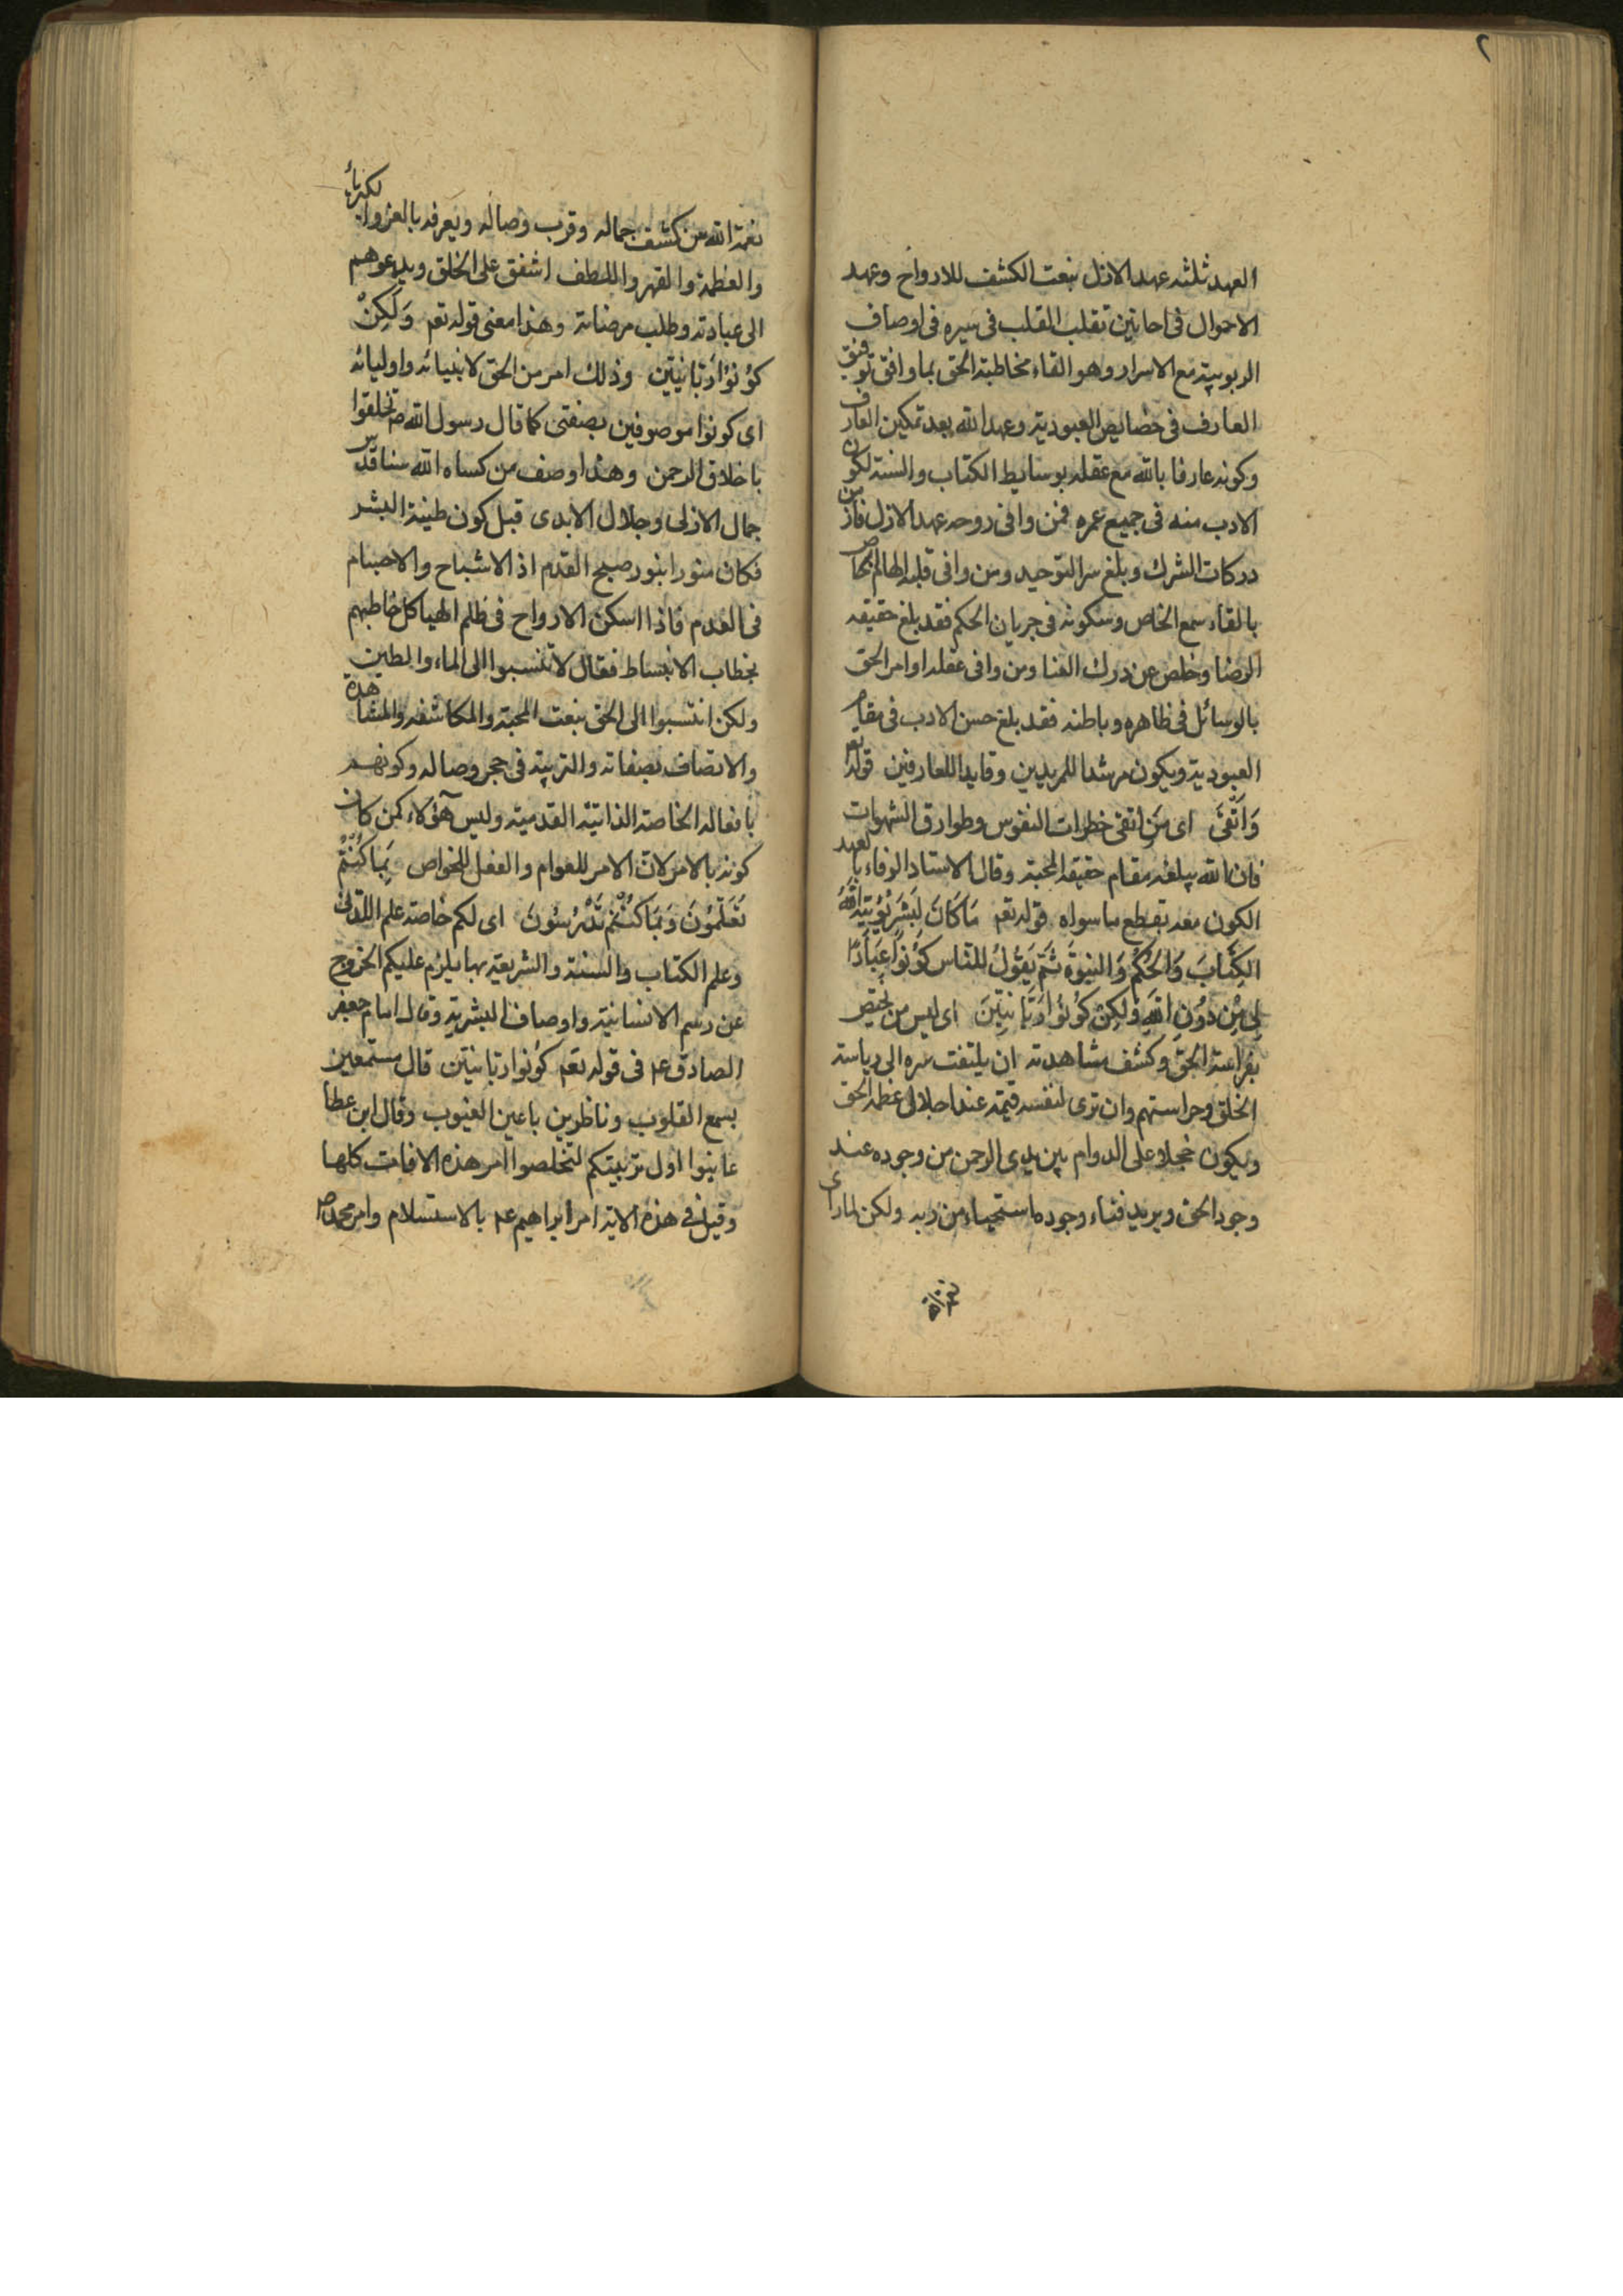 ٢
العهد ثلثه عهد الازل بنعت الكشف للارواح وعهد
الاحوال فى احايين تقلب القلب فى سيره فى اوصاف
الربوبية مع الاسرار وهو القاء مخاطبة الحق بما وافق توفيق
العارف فى خصايص العبودية وعهد الله بعد تمكين العارف
وكونه عارفا بالله مع عقله بوسايط الكتاب والسنة لكون
الادب منه فى جميع عمره فمن وافى روحه عهد الازل فاز من
دركات الشرك وبلغ سر التوحيد ومن وافى قلبه الهام الخاص
بالقاء سمع الخاص وسكونه فى جريان الحكم فقد بلغ حقيقه
الرضا وخلص عن درك الفنا ومن وافى عقله اوامر الحق
بالوسائل فى ظاهره وباطنه فقد بلغ حسن الادب فى مقام
العبودية ويكون مرشدا للمريدين وقايدا للعارفين قوله تعم
وَاتَّقىَ اى مَن اتقى خطرات النفوس وطوارق الشهوات
فان الله يبلغه مقام حقيقه المحبة وقال الاستاد الوفاء بالعهد
الكون معه تقطع ما سواه قوله تعم مَا كَانَ لِبَشَرٍ يُؤْتِيَهُ اللهُ
الكِتَابَ وَالحُكْمَ وَالنبوةَ ثُمَّ يَقُولُ للنَّاس كُونُوا عِبَادًا
لِى مِنْ دُونِ اللهِ وَلكِنْ كُونُوا رَبَّانِيّينَ اى ليس من يختص
بفراسة الحق وكشف مشاهدته ان يلتفت سره الى رياسة
الخلق وحراستهم وان ترى لنفسه قيمة عند اجلال عظمة الحق
ويكون خجلا على الدوام بين يدى الرحمن من وجوده عند
وجود الحق ويريد فناء وجوده استحياء من ربه ولكن لما راى
نعمة
نعمة الله من كشف جماله وقرب وصاله ويعرفه بالعز والكبرياء
والعظمة والقهر واللطف اشفق على الخلق ويدعوهم
الى عبادته وطلب مرضاته وهذا معنى قوله تعم وَلَكِنْ
كُونُوا رَبَّانِيّين وذلك امر من الحق لانبيائه واوليائه
اى كونوا موصوفين بصفتى كما قال رسول الله ص تخلقوا
باخلاق الرحمن وهذا وصف من كساه الله سنا قدس
جمال الازلى وجلال الابدى قبل كون طينة البشر
فكان منورا بنور صبح القدم اذ الاشباح والاجسام
فى العدم فاذا اسكن الارواح فى ظلم الهياكل خاطبهم
بخطاب الانبساط فقال لا تنسبوا الى الماء والطين
ولكن انتسبوا الى الحق بنعت المحبة والمكاشفه والمشاهدة
والاتصاف بصفاته والتربية فى حجر وصاله وكونهم
بافعاله الخاصة الذاتية القدمية وليس هؤلاء كمن كان
كونه بالامر لان الامر للعوام والفعل للخواص بِمَا كُنْتُمْ
تُعَلِّمُونَ وَبِمَا كُنْتُمْ تَدْرُسُونَ اى لكم خاصة علم اللدنى
وعلم الكتاب والسنة والشريعة بها يلزم عليكم الخروج
عن رسم الانسانية واوصاف البشرية وقال امام جعفر
الصادق عم فى قوله تعم كونوا ربانيّين قال مستمعين
بسمع القلوب وناظرين باعين الغيوب وقال ابن عطا
عاينوا اول تربيتكم لتخلصوا امر هذه الافات كلها
وقيل فى هذه الاية امر ابراهيم عم بالاستسلام وامر محمد ص